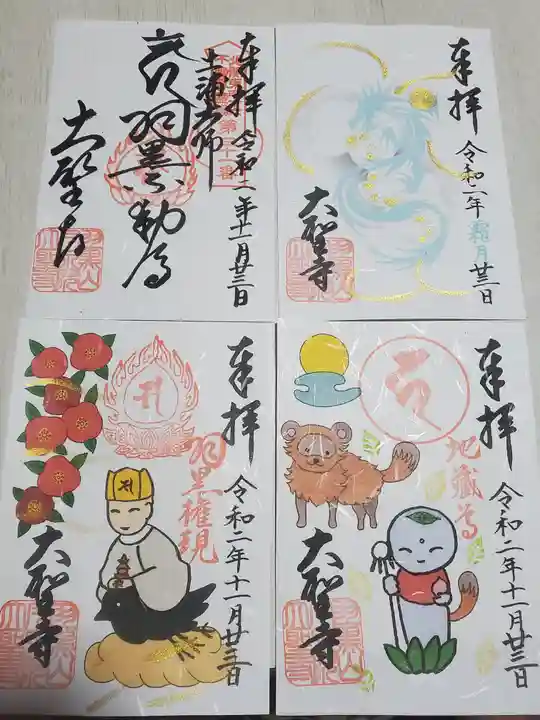 奉拝
土浦大師
令和二年十一月廿三日
大聖寺
奉拝
令和二年霜月廿三日
大聖寺
奉拝
羽黒権現
令和二年十一月廿三日
大聖寺
奉拝
地蔵尊
令和二年十一月廿三日
大聖寺